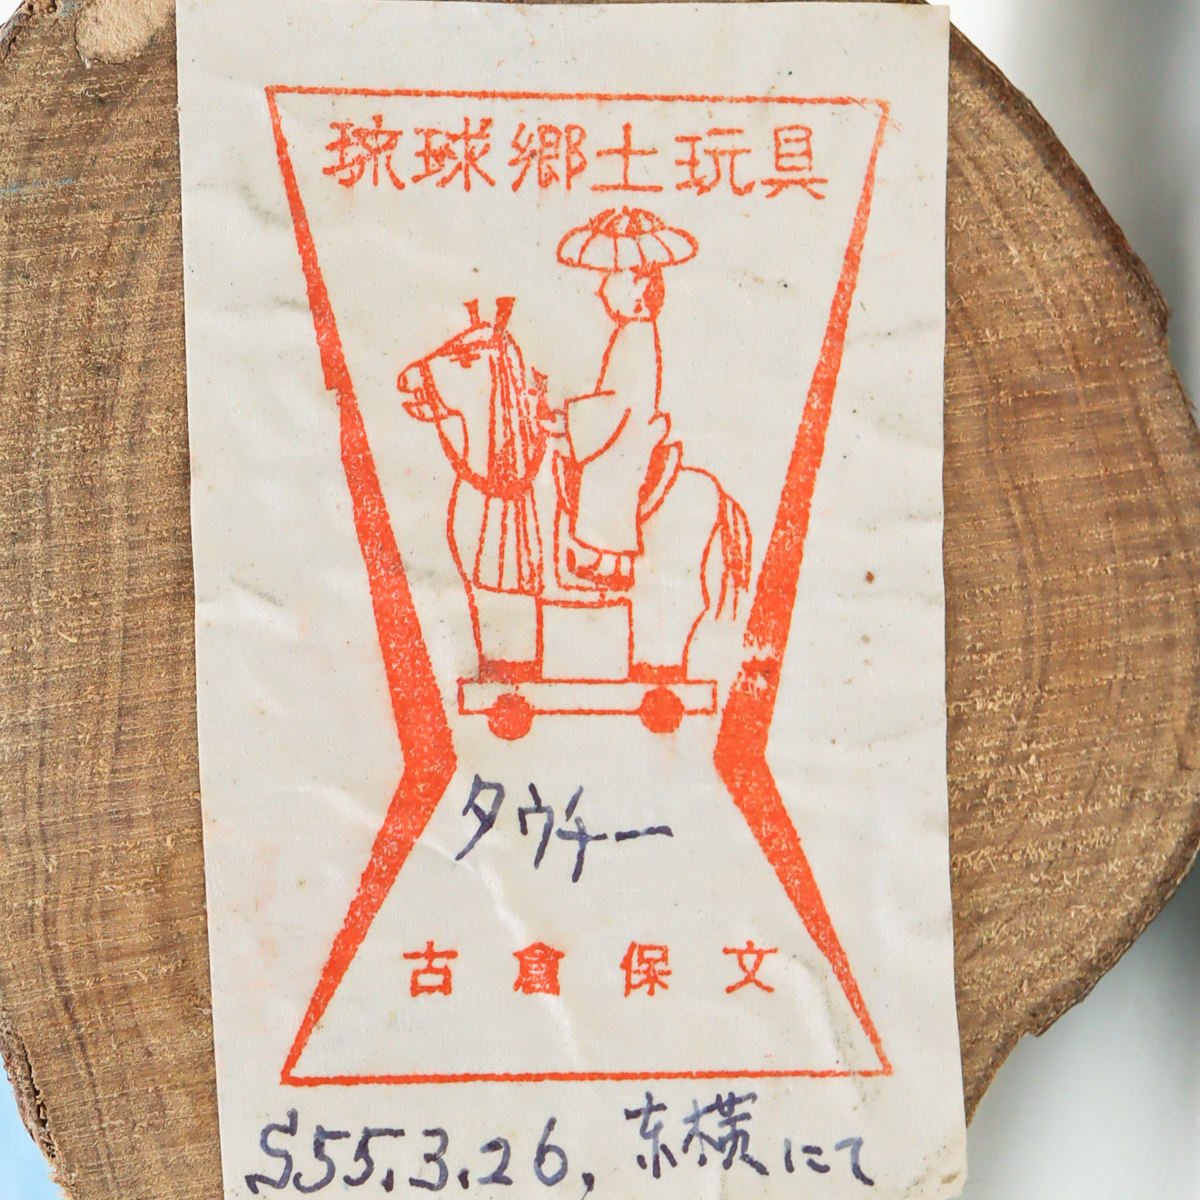 琉球郷土玩具
タウチー
古倉保文
S55.3.26, 东横にて